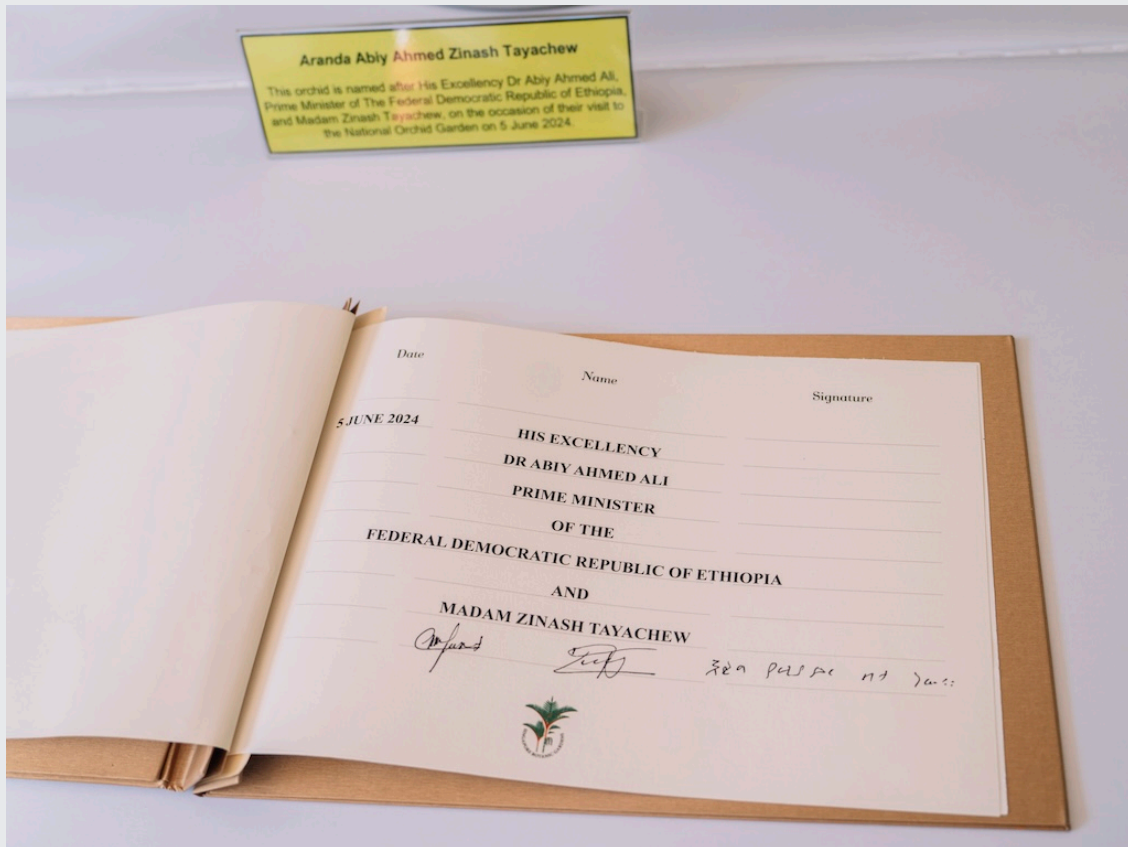 Aranda Abiy Ahmed Zinash Tayachew
This orchid is named after His Excellency Dr Abiy Ahmed Ali,
Prime Minister of The Federal Democratic Republic of Ethiopia,
and Madam Zinash Tayachew, on the occasion of their visit to
the National Orchid Garden on 5 June 2024.
Date Name Signature
5 JUNE 2024
HIS EXCELLENCY
DR ABIY AHMED ALI
PRIME MINISTER
OF THE
FEDERAL DEMOCRATIC REPUBLIC OF ETHIOPIA
AND
MADAM ZINASH TAYACHEW